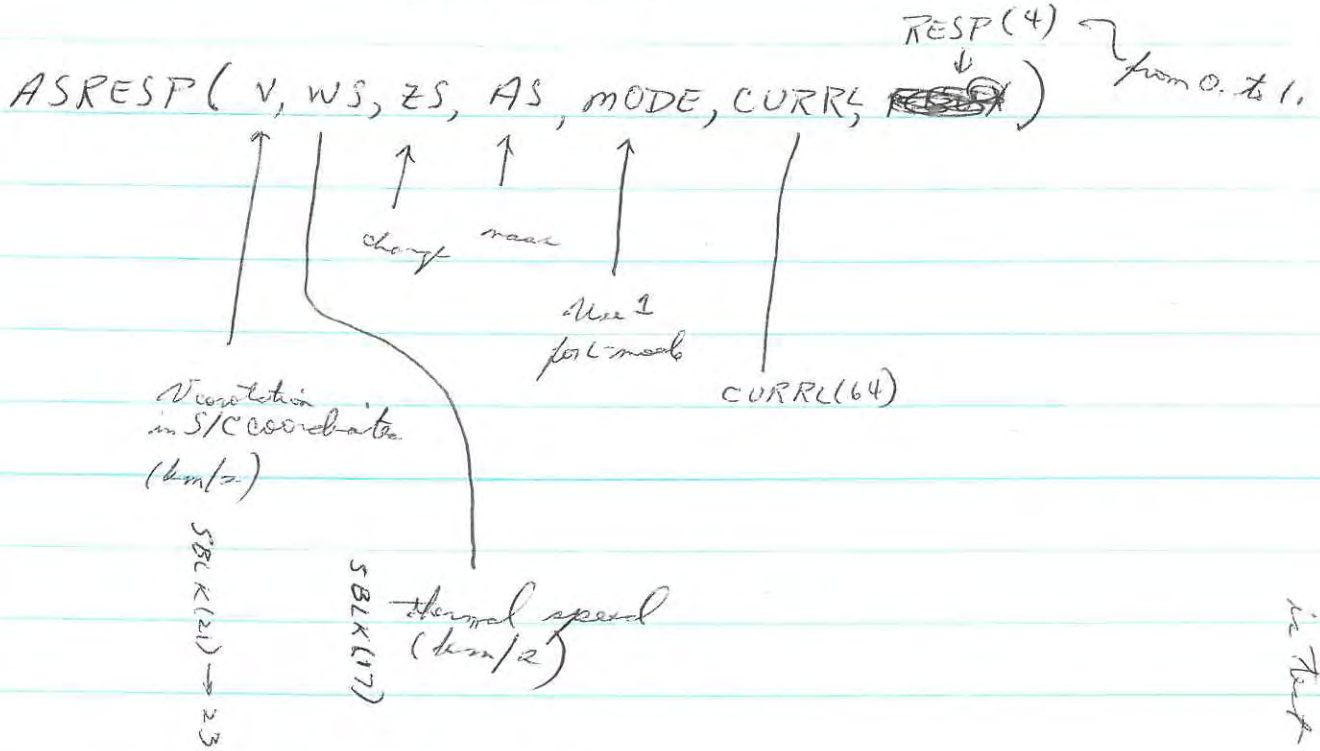 RESP(4)
from 0. to 1.
ASRESP( V, WS, ZS, AS, MODE, CURRL, )
charge
mass
Use 1
for L-mode
V corotation
in S/C coordinates
(km/s)
CURRL(64)
SBLK(21) → 23
SBLK(17)
thermal speed
(km/s)
in Test